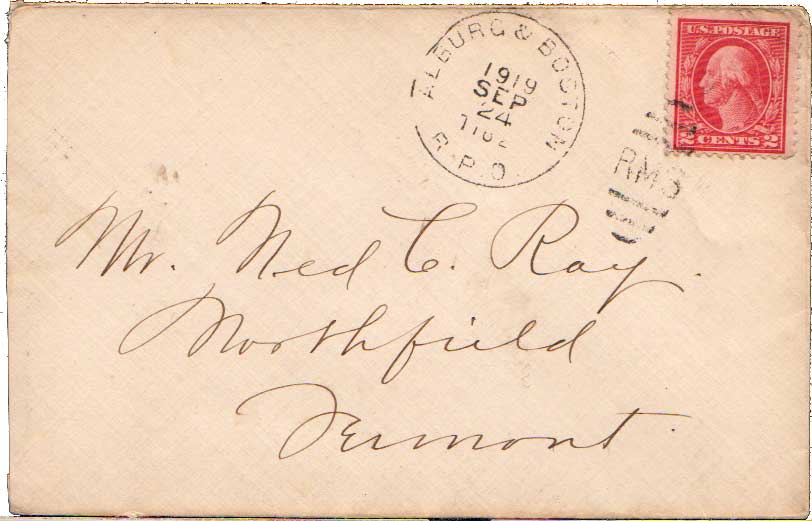 ALBURG & BOSTON
1919
SEP
24
R.P.O.
U.S. POSTAGE
2 CENTS 2
RMS
Mr. Ned C. Ray.
Northfield
Vermont